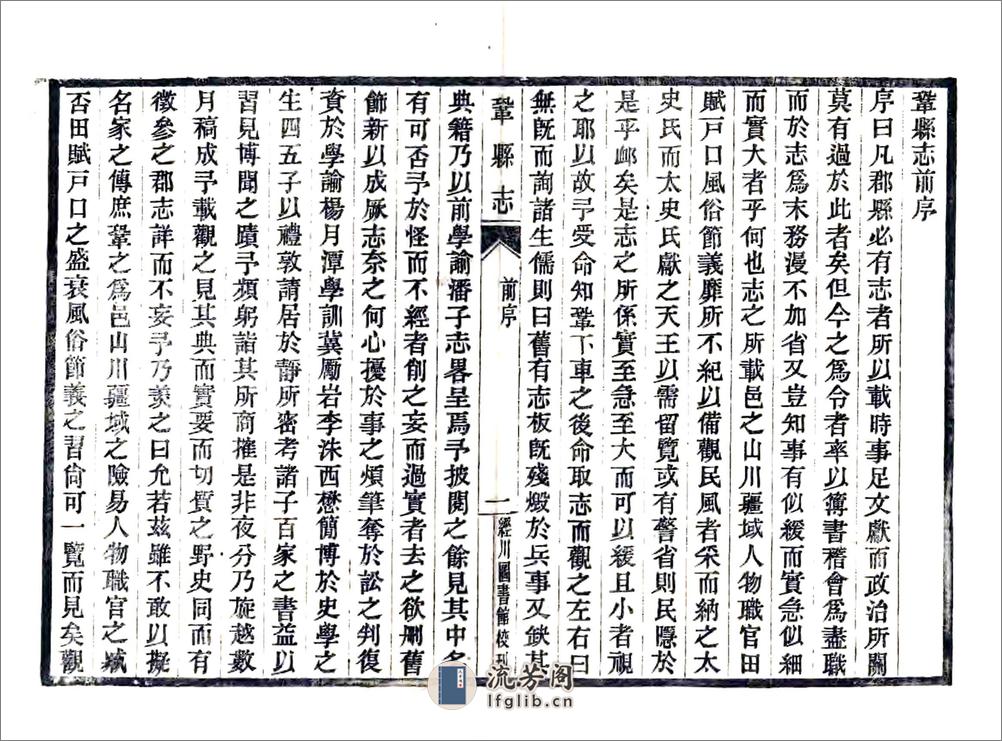 鞏縣志前序
序曰凡郡縣必有志者所以載時事足文獻而政治所關
莫有過於此者矣但今之為令者率以簿書稽會為盡職
而於志為末務漫不加省又豈知事有似緩而實急似細
而實大者乎何也志之所載邑之山川疆域人物職官田
賦戸口風俗節義靡所不紀以備觀民風者采而納之太
史氏而太史氏獻之天王以需留覽或有警省則民隱於
是乎邮矣是志之所係實至急至大而可以緩且小者視
之耶以故予受命知鞏下車之後命取志而觀之左右曰
無既而詢諸生儒則曰舊有志板既殘燬於兵事又缺其
鞏縣志
前序
一
經川圖書館校刊
典籍乃以前學諭潘子志畧呈焉予披閱之餘見其中名
有可否予於怪而不經者創之妄而過實者去之欲刪舊
飾新以成厥志奈之何心擾於事之煩筆奪於訟之判復
資於學諭楊月潭學訓冀厲岩李洙西懋簡博於史學之
生四五子以禮敦請居於靜所密考諸子百家之書益以
習見博聞之蹟予頻躬詣其所商摧是非夜分乃旋越數
月稿成予載觀之見其典而實要而切質之野史同而有
徵參之郡志詳而不妄予乃羨之曰允若茲雖不敢以擬
名家之傳庶鞏之為邑山川疆域之險易人物職官之臧
否田賦戸口之盛衰風俗節義之習尙可一覽而見矣觀
流芳阁
lfglib.cn